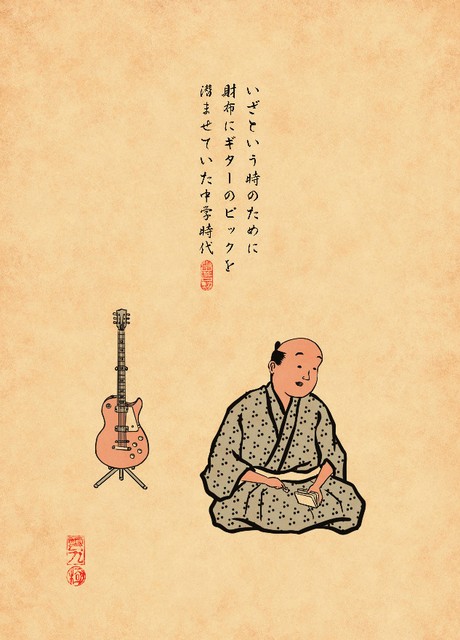 いざという時のために
財布にギターのピックを
潜ませていた中学時代